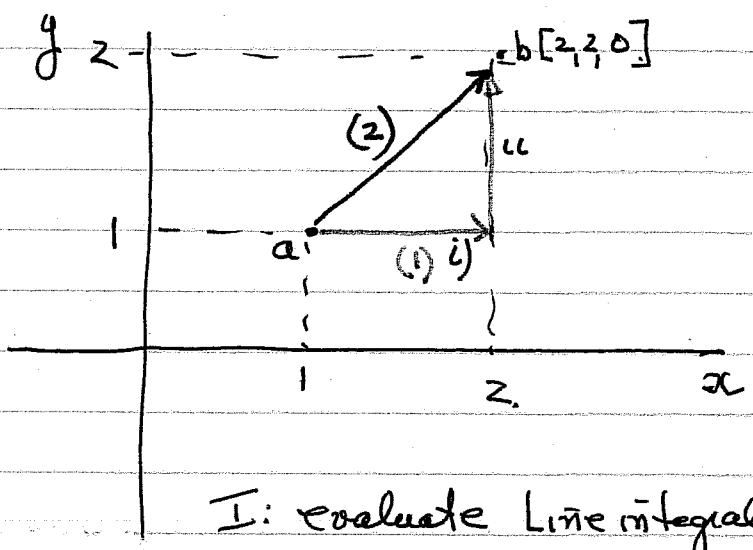 y
2
b[2,2,0]
(2)
ii
1
a
(1) i)
1
2.
x
I: evaluate Line integral